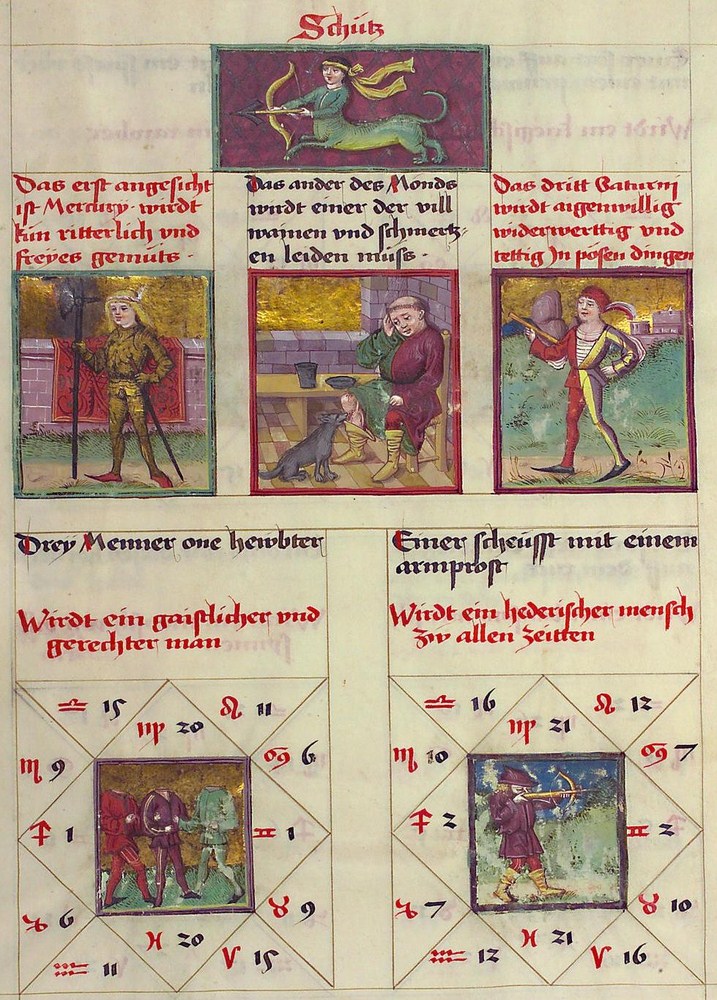 Schütz
Das erst angesicht
ist Mercury wirdt
kün ritterlich vnd
freyes gemüts ·
Das ander des Monds
wirdt einer der vill
wainen vnd schmertz-
en leiden muss ·
Das dritt Saturni
wirdt aigenwillig
widerwerttig vnd
tettig Jn pösen dingen
Drey Menner one hewbter
Wirdt ein gaistlicher vnd
gerechter man
♎ 15
♍ 20
♌ 11
♏ 9
♋ 6
♐ 1
♊ 1
♑ 6
♉ 9
♒ 11
♓ 20
♈ 15
Einer scheüsst mit einem
armprost
Wirdt ein hederischer mensch
Zw allen Zeitten
♎ 16
♍ 21
♌ 12
♏ 10
♋ 7
♐ 2
♊ 2
♑ 7
♉ 10
♒ 12
♓ 21
♈ 16